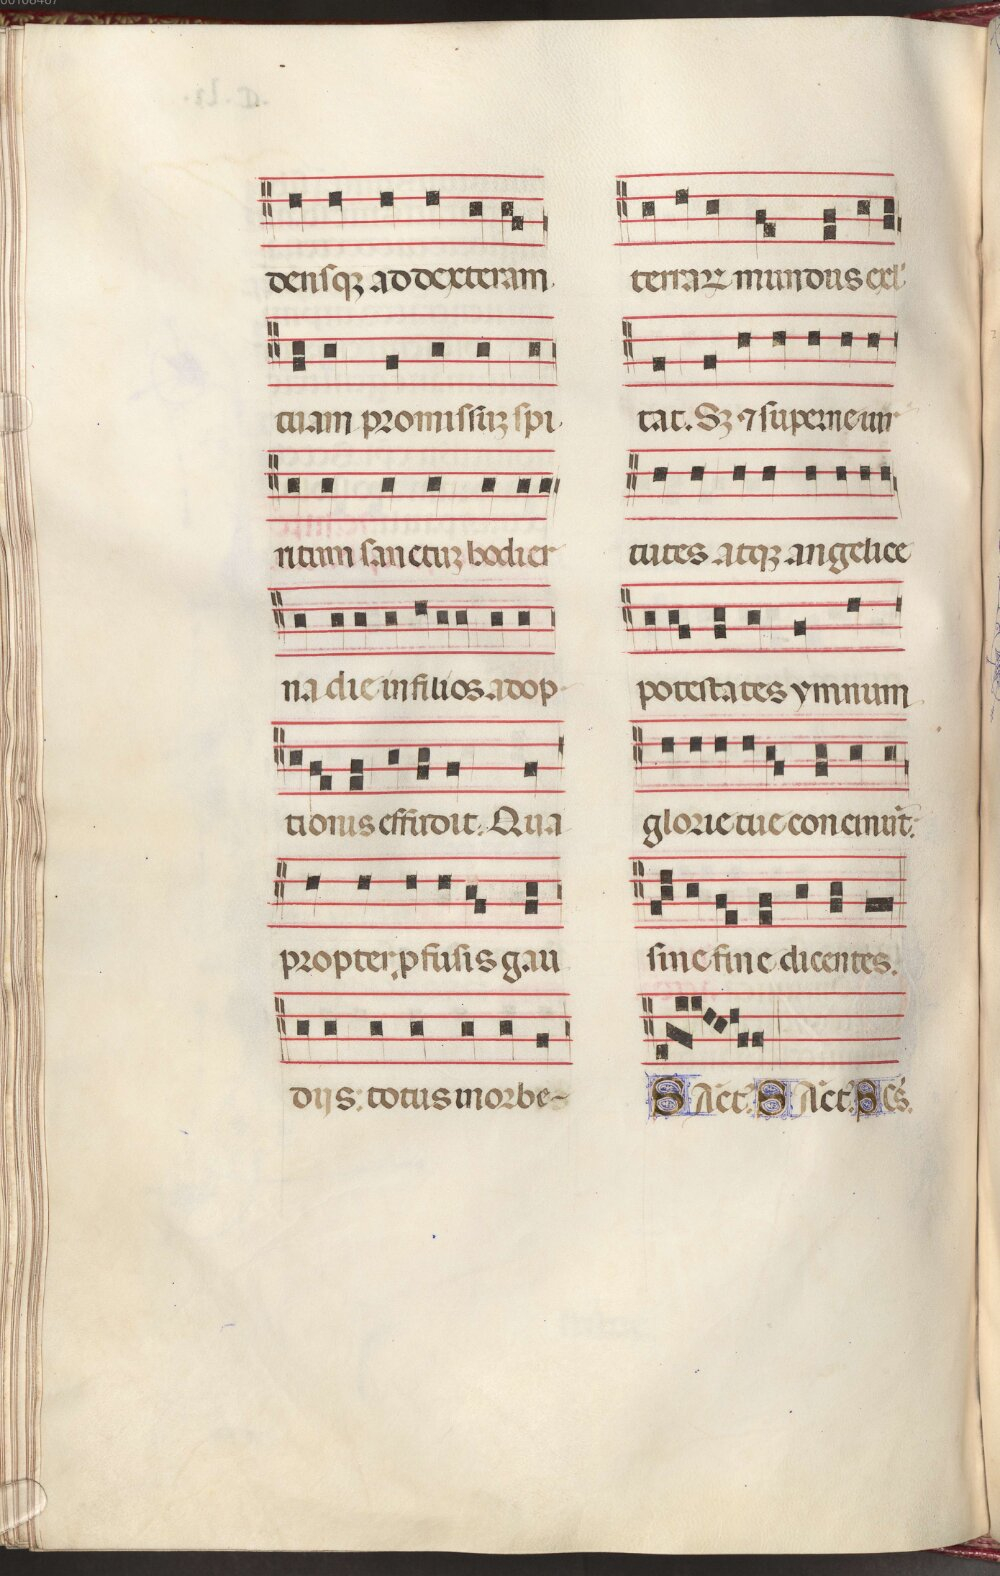 densqꝫ ad dexteram
tuam promissūꝫ spi
ritum sanctuꝫ hodier
na die in filios adop-
tionis effudit. Qua
propter ꝓfusis gau
dijs: totus in orbe-
terraꝝ mundus exl'
tat. Sꝫ ⁊ superne uir
tutes atqꝫ angelice
potestates ymnum
glorie tue concinūt:
sine fine dicentes.
S āct'. S āct'. S cs̄.